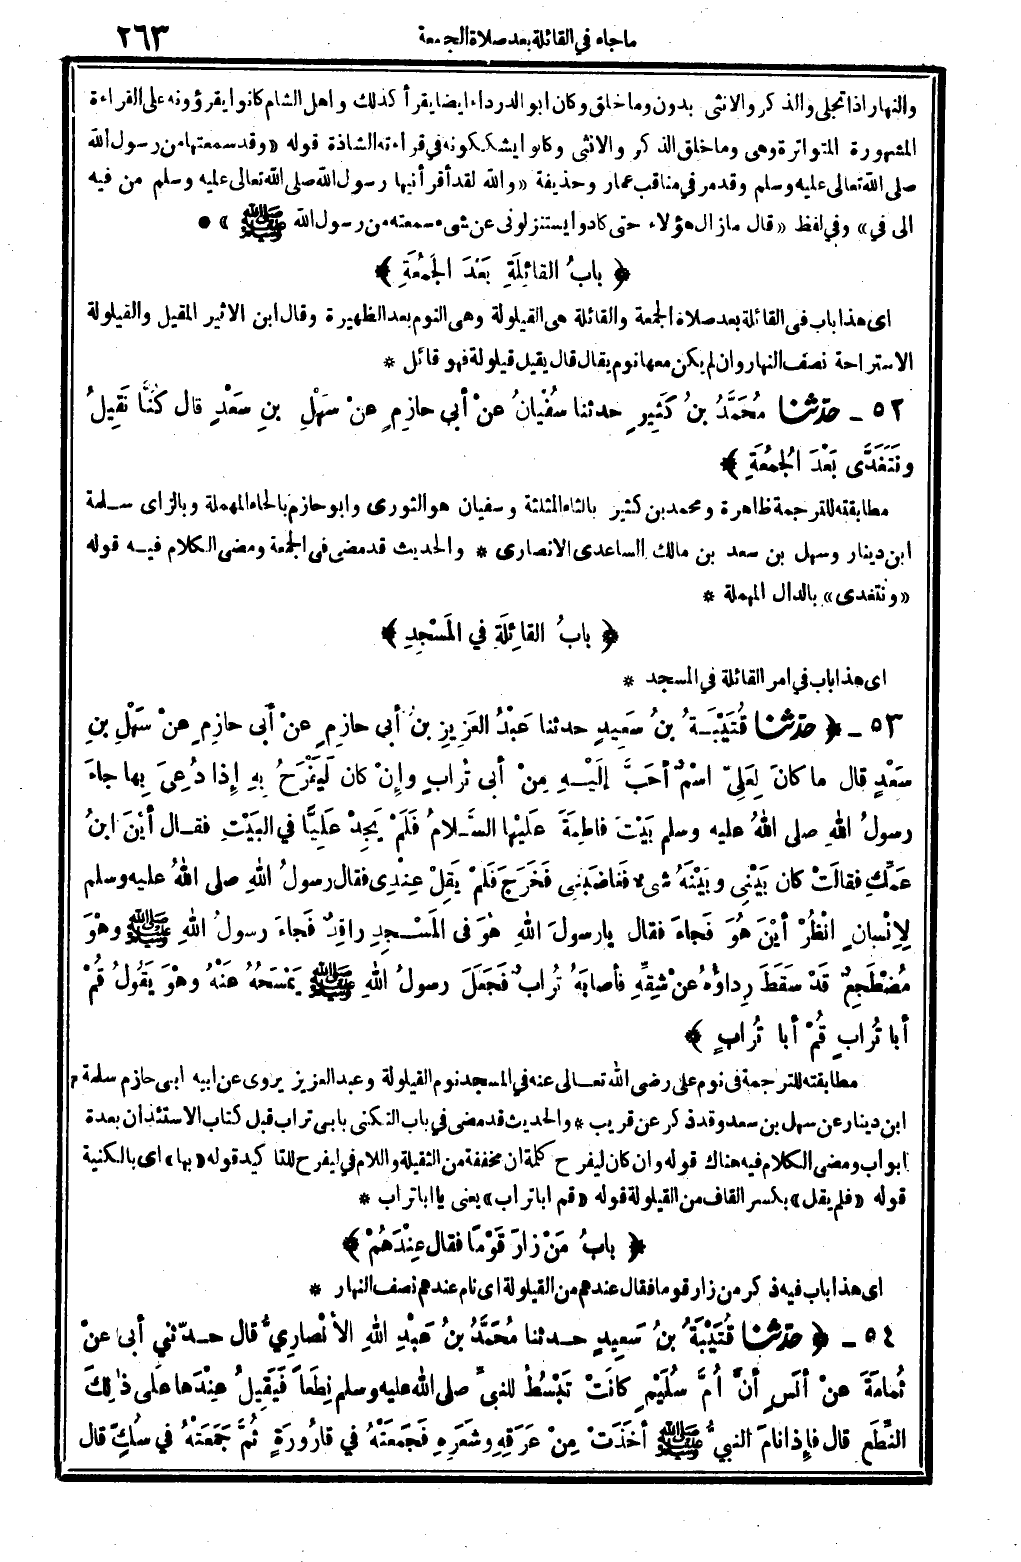 ما جاء في القائلة بعد صلاة الجمعة ٢٦٣
والنهار اذا تجلى والذكر والانثى بدون وما خلق وكان ابو الدرداء ايضا يقرأ كذلك واهل الشام كانوا يقرؤونه على القراءة
المشهورة المتواترة وهى وما خلق الذكر والانثى وكانوا يشككونه في قراءته الشاذة قوله «وقد سمعتها من رسول الله
صلى الله تعالى عليه وسلم وقد مر في مناقب عمار وحذيفة «والله لقد أقرأنيها رسول الله صلى الله تعالى عليه وسلم من فيه
الى في» وفي لفظ «قال ما زال هؤلاء حتى كادوا يستنزلونى عن شىء سمعته من رسول الله ﷺ» •
﴿ بابُ القائِلَةِ بَعْدَ الجُمُعَةِ ﴾
اى هذا باب في القائلة بعد صلاة الجمعة والقائلة هى القيلولة وهى النوم بعد الظهيرة وقال ابن الاثير المقيل والقيلولة
الاستراحة نصف النهار وان لم يكن معها نوم يقال قال يقيل قيلولة فهو قائل *
٥٢ ـ حدّثنا مُحَمَّدُ بنُ كَثِيرٍ حدثنا سُفْيانُ عنْ أبي حازِمٍ عنْ سَهْلِ بنِ سَعْدٍ قال كُنَّا نَقِيلُ
ونَتَغَدَّى بَعْدَ الجُمُعَةِ ﴾
مطابقته للترجمة ظاهرة ومحمد بن كثير بالثاء المثلثة وسفيان هو الثورى وابو حازم بالحاء المهملة وبالزاى سلمة
ابن دينار وسهل بن سعد بن مالك الساعدى الانصارى * والحديث قد مضى في الجمعة ومضى الكلام فيه قوله
«ونتغدى» بالدال المهملة *
﴿ بابُ القائِلَةِ في المَسْجِدِ ﴾
اى هذا باب في امر القائلة في المسجد *
٥٣ ـ ﴿ حدّثنا قُتَيْبَةُ بنُ سَعِيدٍ حدثنا عَبْدُ العَزِيزِ بنُ أبي حازِمٍ عنْ أبي حازِمٍ عنْ سَهْلِ بنِ
سَعْدٍ قال ما كانَ لِعَلِيٍّ اسْمٌ أحَبَّ إلَيْهِ مِنْ أبي تُرابٍ وإنْ كان لَيَفْرَحُ بهِ إذا دُعِيَ بِها جاءَ
رسولُ اللهِ صلى اللهُ عليه وسلم بَيْتَ فاطِمَةَ عَلَيْها السَّلامُ فَلَمْ يَجِدْ عَلِيًّا في البَيْتِ فقال أيْنَ ابنُ
عَمِّكِ فقالَتْ كان بَيْنِي وبَيْنَهُ شيءٌ فغاضَبَنِي فَخَرَجَ فَلَمْ يَقِلْ عِنْدِي فقال رسولُ اللهِ صلى اللهُ عليه وسلم
لإِنْسانٍ انْظُرْ أيْنَ هُوَ فَجاءَ فقال يا رسولَ اللهِ هُوَ في المَسْجِدِ راقِدٌ فَجاءَ رسولُ اللهِ ﷺ وهْوَ
مُضْطَجِعٌ قَدْ سَقَطَ رِداؤُهُ عنْ شِقِّهِ فأصابَهُ تُرابٌ فَجَعَلَ رسولُ اللهِ ﷺ يَمْسَحُهُ عَنْهُ وهْوَ يَقُولُ قُمْ
أبا تُرابٍ قُمْ أبا تُرابٍ ﴾
مطابقته للترجمة في نوم على رضى الله تعالى عنه في المسجد نوم القيلولة وعبد العزيز يروى عن ابيه ابى حازم سلمة
ابن دينار عن سهل بن سعد وقد ذكر عن قريب * والحديث قد مضى في باب التكنى بابى تراب قبل كتاب الاستئذان بعدة
ابواب ومضى الكلام فيه هناك قوله وان كان ليفرح كلمة ان مخففة من الثقيلة واللام في ليفرح للتاكيد قوله «بها» اى بالكنية
قوله «فلم يقل» بكسر القاف من القيلولة قوله «قم ابا تراب» يعنى يا ابا تراب *
﴿ بابُ مَنْ زارَ قَوْمًا فقال عِنْدَهُمْ ﴾
اى هذا باب فيه ذكر من زار قوما فقال عندهم من القيلولة اى نام عندهم نصف النهار *
٥٤ ـ ﴿ حدّثنا قُتَيْبَةُ بنُ سَعِيدٍ حدثنا مُحَمَّدُ بنُ عَبْدِ اللهِ الأنْصارِيُّ قال حدّثني أبى عنْ
ثُمامَةَ عنْ أنَسٍ أنَّ أُمَّ سُلَيْمٍ كانَتْ تَبْسُطُ للنبيِّ صلى الله عليه وسلم نِطَعاً فَيَقِيلُ عِنْدَها علَى ذٰلِكَ
النِّطَعِ قال فإذا نامَ النبيُّ ﷺ أخَذَتْ مِنْ عَرَقِهِ وشَعَرِهِ فَجَمَعَتْهُ في قارُورَةٍ ثُمَّ جَمَعَتْهُ في سُكٍّ قال